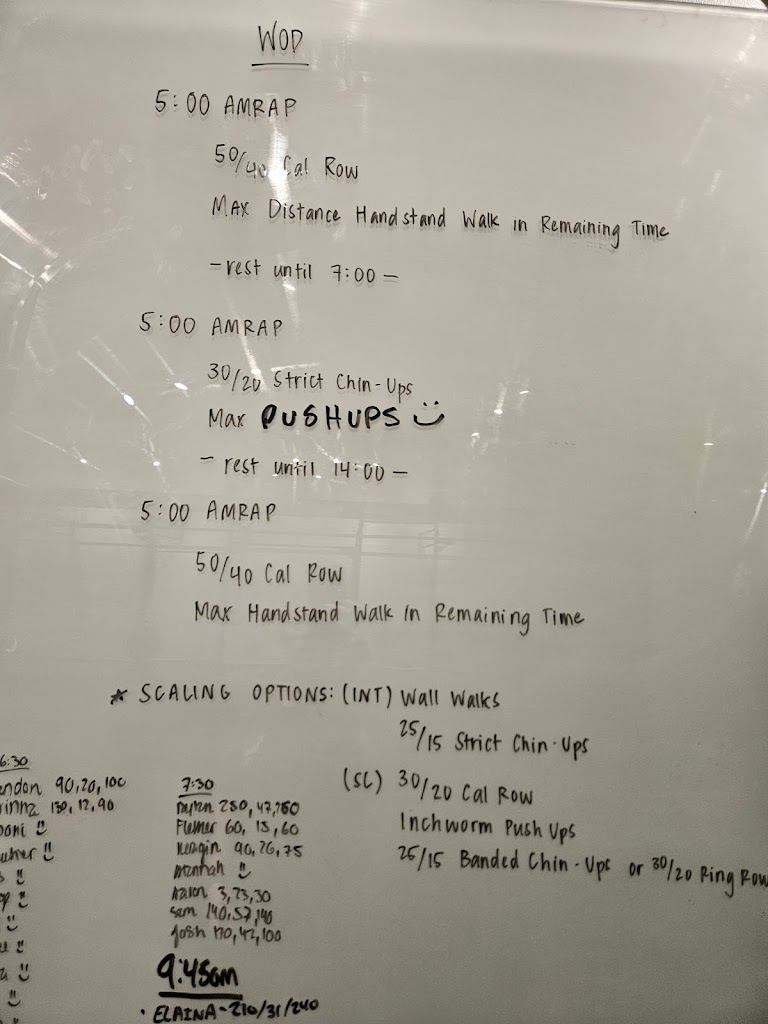 WOD
5:00 AMRAP
50/40 Cal Row
Max Distance Handstand Walk in Remaining Time
- rest until 7:00 -
5:00 AMRAP
30/20 Strict Chin-Ups
Max PUSHUPS
- rest until 14:00 -
5:00 AMRAP
50/40 Cal Row
Max Handstand Walk In Remaining Time
* SCALING OPTIONS: (INT) Wall Walks
25/15 Strict Chin-Ups
(SC) 30/20 Cal Row
Inchworm Push Ups
25/15 Banded Chin-Ups or 30/20 Ring Row
6:30
90, 20, 100
12, 90
7:30
60, 15, 60
90, 26, 75
Hannah
Aaron 3, 23, 30
Sam 140, 57, 140
Josh 170, 42, 100
9:45am
• ELAINA - 210/31/240